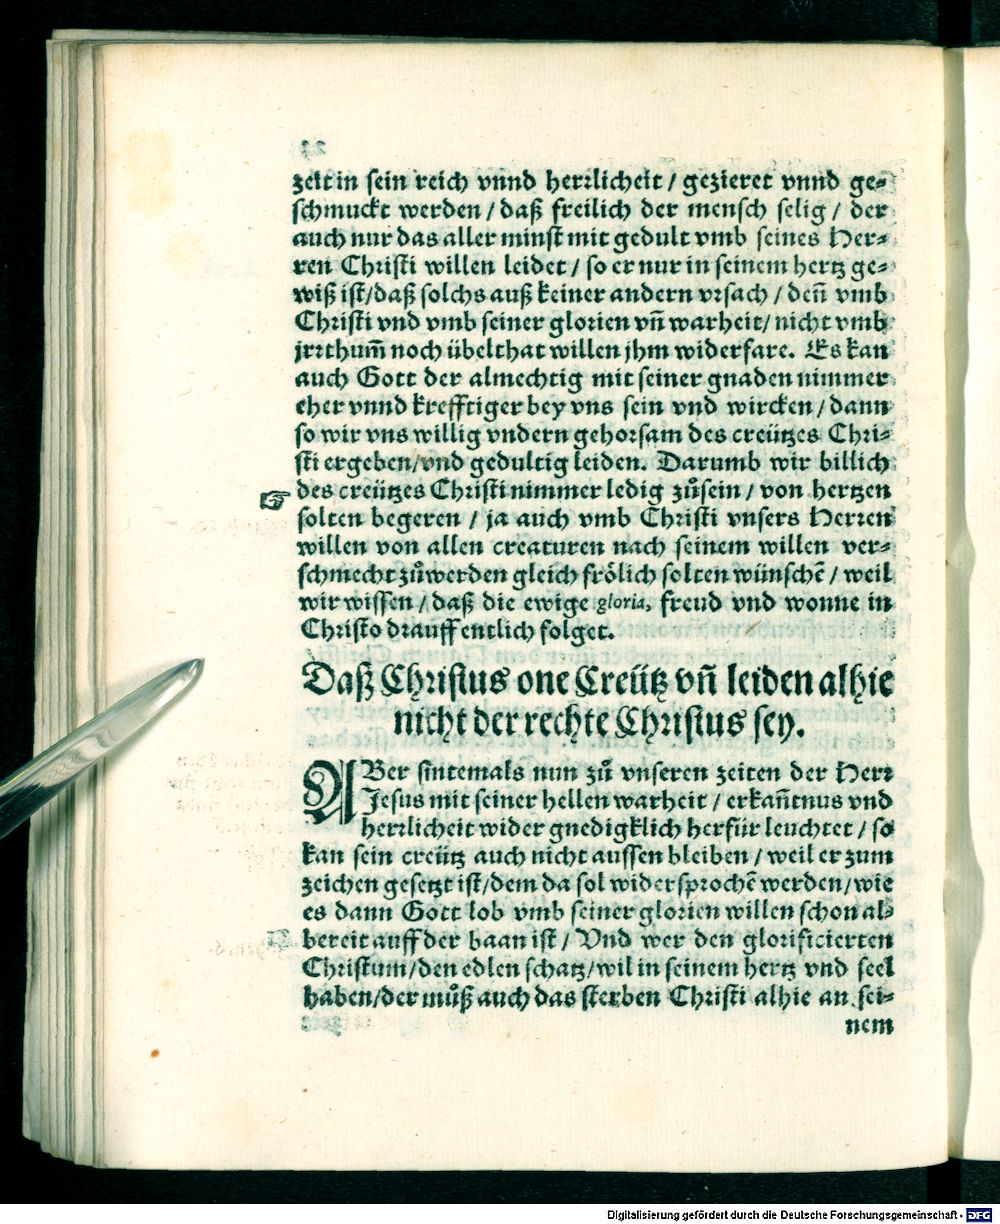 zeit in sein reich vnnd herrlicheit / gezieret vnnd ge⸗
schmuckt werden / daß freilich der mensch selig / der
auch nur das aller minst mit gedult vmb seines Her⸗
ren Christi willen leidet / so er nur in seinem hertz ge⸗
wiß ist/daß solchs auß keiner andern vrsach / deñ vmb
Christi vnd vmb seiner glorien vñ warheit/ nicht vmb
jrrthum̃ noch übelthat willen jhm widerfare. Es kan
auch Gott der almechtig mit seiner gnaden nimmer
eher vnnd krefftiger bey vns sein vnd wircken / dann
so wir vns willig vndern gehorsam des creützes Chri⸗
sti ergeben/vnd gedultig leiden. Darumb wir billich
☞ des creützes Christi nimmer ledig zůsein / von hertzen
solten begeren / ja auch vmb Christi vnsers Herren
willen von allen creaturen nach seinem willen ver⸗
schmecht zůwerden gleich frölich solten wünschẽ / weil
wir wissen / daß die ewige gloria, freud vnd wonne in
Christo drauff entlich folget.
Daß Christus one Creütz vñ leiden alhie
nicht der rechte Christus sey.
ABer sintemals nun zů vnseren zeiten der Herr
Jesus mit seiner hellen warheit / erkañtnus vnd
herrlicheit wider gnedigklich herfür leuchtet / so
kan sein creütz auch nicht aussen bleiben / weil er zum
zeichen gesetzt ist/dem da sol widersprochẽ werden/wie
es dann Gott lob vmb seiner glorien willen schon al⸗
bereit auff der baan ist / Vnd wer den glorificierten
Christum/den edlen schatz/wil in seinem hertz vnd seel
haben/der můß auch das sterben Christi alhie an sei⸗
nem
Digitalisierung gefördert durch die Deutsche Forschungsgemeinschaft - DFG